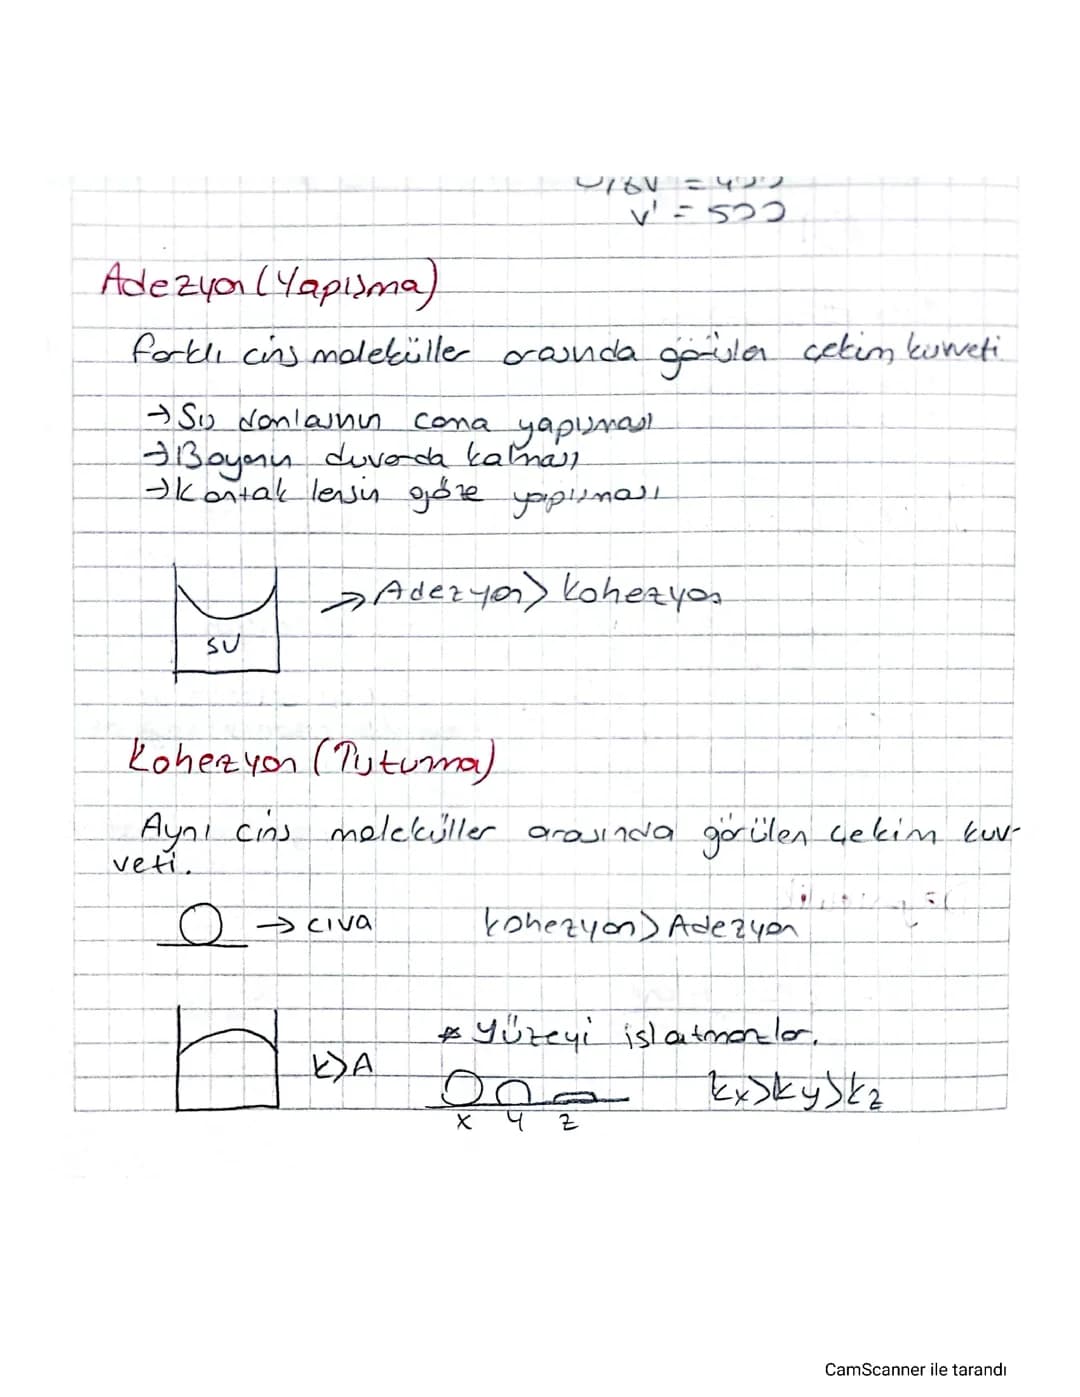 v' = 500
Adezyon (Yapışma)
farklı cins moleküller arasında görülen çekim kuvveti
→ Su damlasının cama yapışması
→ Boyanın duvarda kalması
→ Kontak lensin göze yapışması
→ Adezyon > Kohezyon
SU
Kohezyon (Tutunma)
Aynı cins moleküller arasında görülen çekim kuv-
veti.
→ civa kohezyon > Adezyon
* Yüzeyi ıslatmazlar.
K > A
kx > ky > kz
x y z
CamScanner ile tarandı